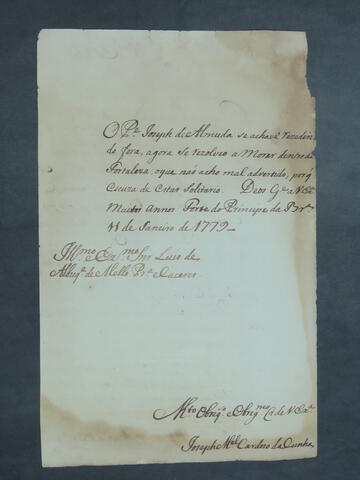 O P.e Joseph de Almeida se achava rezedin
do fora, agora se rezolveo a Morar dentro da
Fortaleza, o que naõ acho mal advertido, porq̃
Escuza de Estar Solitario. Deos G.e a V. Ex.a
Muitos Annos Forte do Principe da Br.a
11 de Janeiro de 1779
Ill.mo e Ex.mo Snr Luis de
Albuq.e de Mello Pr.a e Caceres
M.to Obrig.o e Obrig.mo C. de V. Ex.a
Joseph M.el Cardoso da Cunha